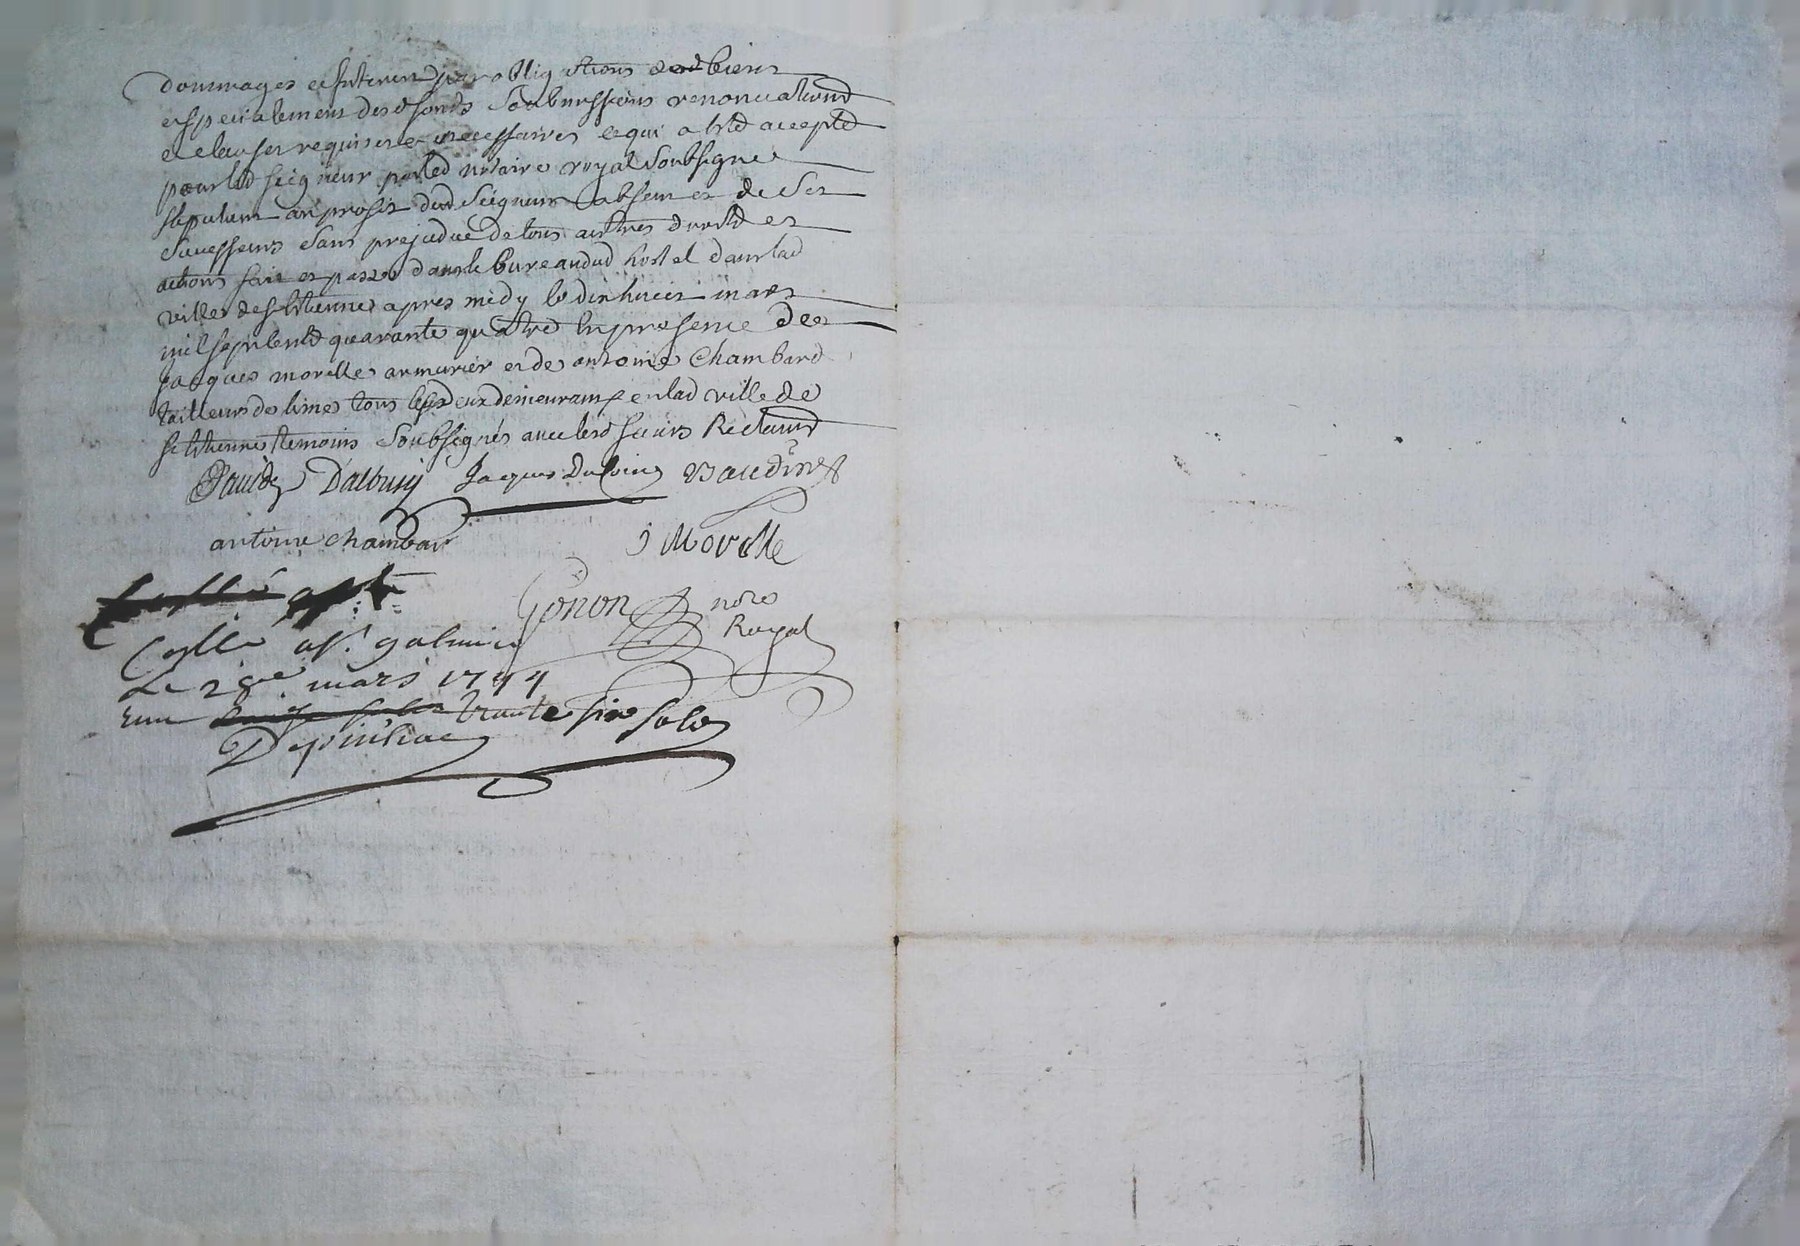 dommages et Interets par obligations de biens
especiallement desd fonds Soubmissions renonciations
et clauses requises et necessaires ce qui a Esté accepté
pour led seigneur par led notaire royal Soubsigne
stipulant au profit dud Seigneur absent et de Ses
Successeurs Sans prejudice de tous autres droits et
actions fait et passé dans le bureau dud hostel dans lad
ville de st Etienne apres midy le dix huict mars
mil sept cents quarante quatre En presence de
Jacques morelle armurier et de antoine Chambard
tailleur de limes tous les deux demeurant en lad ville de
st Etienne temoins Soubsignés avec lesd sieurs
Dalbusy Jacques Baudin
antoine chambar
J Morelle
Gonon nore
Royal
Con̄llé a st. galmier
Le 28e. mars 1744
trante six sols
Depinhac